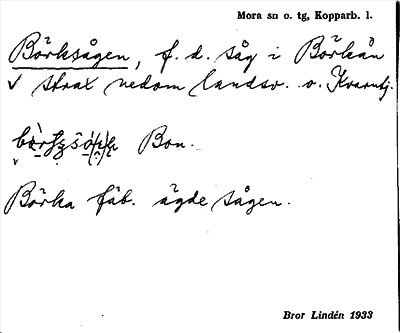 Mora sn o. tg, Kopparb. l.
Börksågen, f. d. såg i Börkån
v strax nedom landsv. o. Kvarntj.
Bon.
Börka fäb. ägde sågen.
Bror Lindén 1933